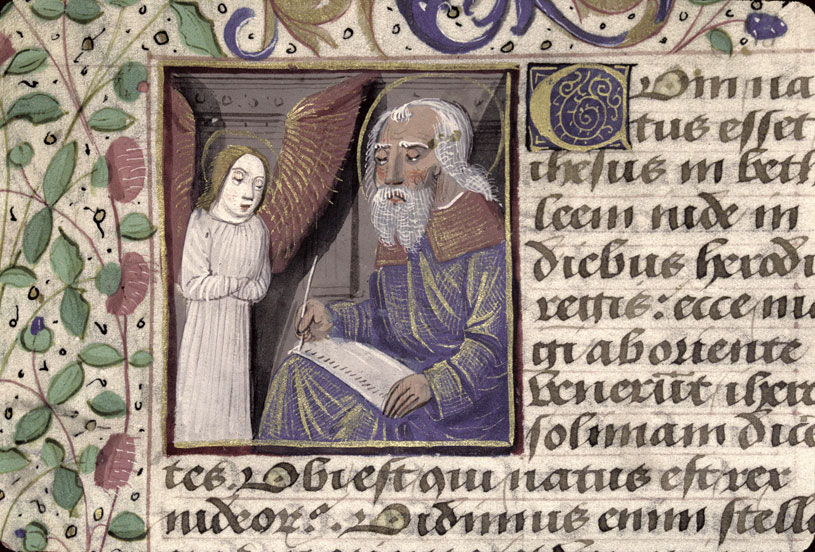 Cum na
tus esset
ihesus in beth
leem iude in
diebus herodi
regis: ecce ma
gi ab oriente
venerūt ihero
solimam dicē
tes. Vbi est qui natus est rex
iudeoꝝ. Vidimus enim stella